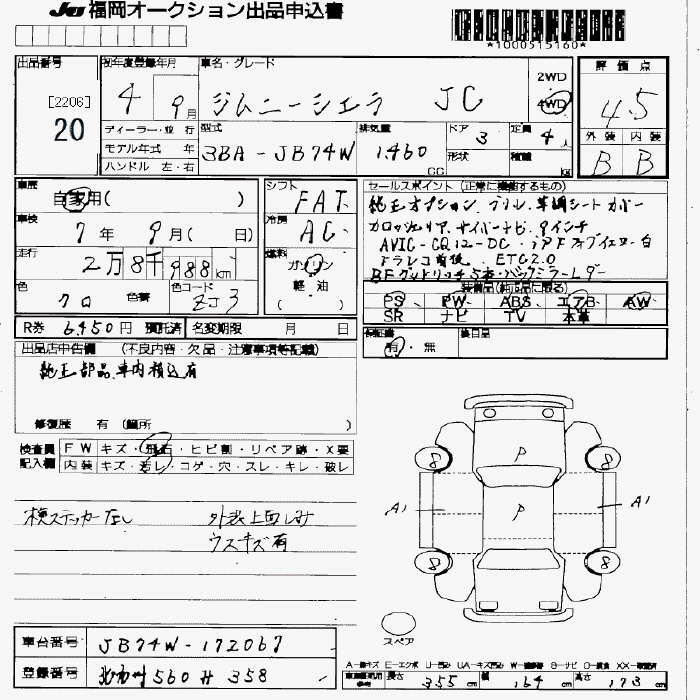 JU 福岡オークション出品申込書
*1000515160*
出品番号
[2206]
20
初年度登録年月
4 9月
車名・グレード
ジムニーシエラ JC
2WD
4WD
評価点
4.5
ディーラー・並行
モデル年式 年
ハンドル 左・右
型式
3BA-JB74W
排気量
1.460
CC
ドア
3
定員
4人
形状
積載
kg
外装 内装
B B
車歴
自家用( )
車検
7年 9月( 日)
走行
2万8千988km
色
クロ
色替
色コード
ZJ3
シフト
FAT
冷房
AC
燃料
ガソリン
軽油
( )
セールスポイント (正常に機能するもの)
純正オプション グリル、革調シートカバー
カロッツェリア サイバーナビ 9インチ
AVIC-CQ12-DC
ドラレコ前後、ETC2.0
BFグッドリッチ5本
装備品(純正品に限る)
PS PW ABS エアB AW
SR ナビ TV 本革
R券 6,450円 預託済
名変期限 月 日
保証書
有・無
後日品
出品店申告欄 (不良内容・欠品・注意事項等記載)
純正部品車内積込有
修復歴 有 (箇所 )
検査員
記入欄
FW キズ・飛石・ヒビ割・リペア跡・X要
内装 キズ・汚レ・コゲ・穴・スレ・キレ・破レ
検ステッカーなし
外装上面しみ
ウスキズ有
8 P 8
A1 P A1
8 8
スペア
車台番号
JB74W-172067
登録番号
北九州 560 H 358
A-線キズ E-エクボ U-凹み UA-キズ凹み W-補修跡 S-サビ C-腐食 XX-取替済
長さ 355 cm
幅 164 cm
高さ 173 cm